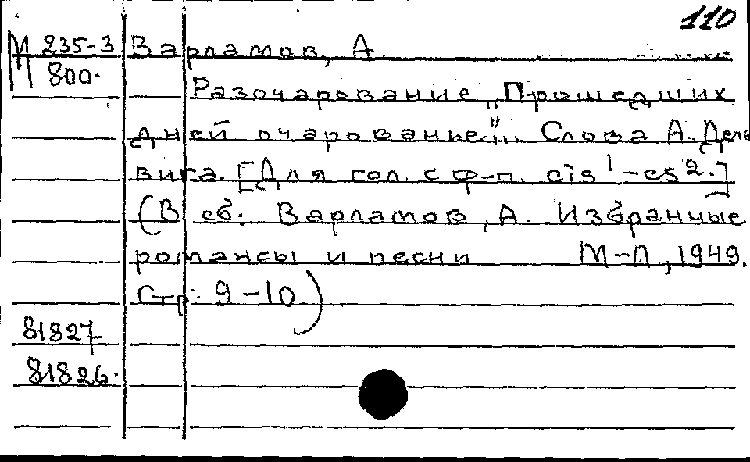 110
М 235-3 Варламов, А
М 800.
Разочарование „Прошедших
дней очарование". Слова А. Дель
вига. [Для гол. с ф-п. cis¹-es².]
(В сб: Варламов, А. Избранные
романсы и песни М-Л, 1949.
Стр: 9-10)
81827
81826.